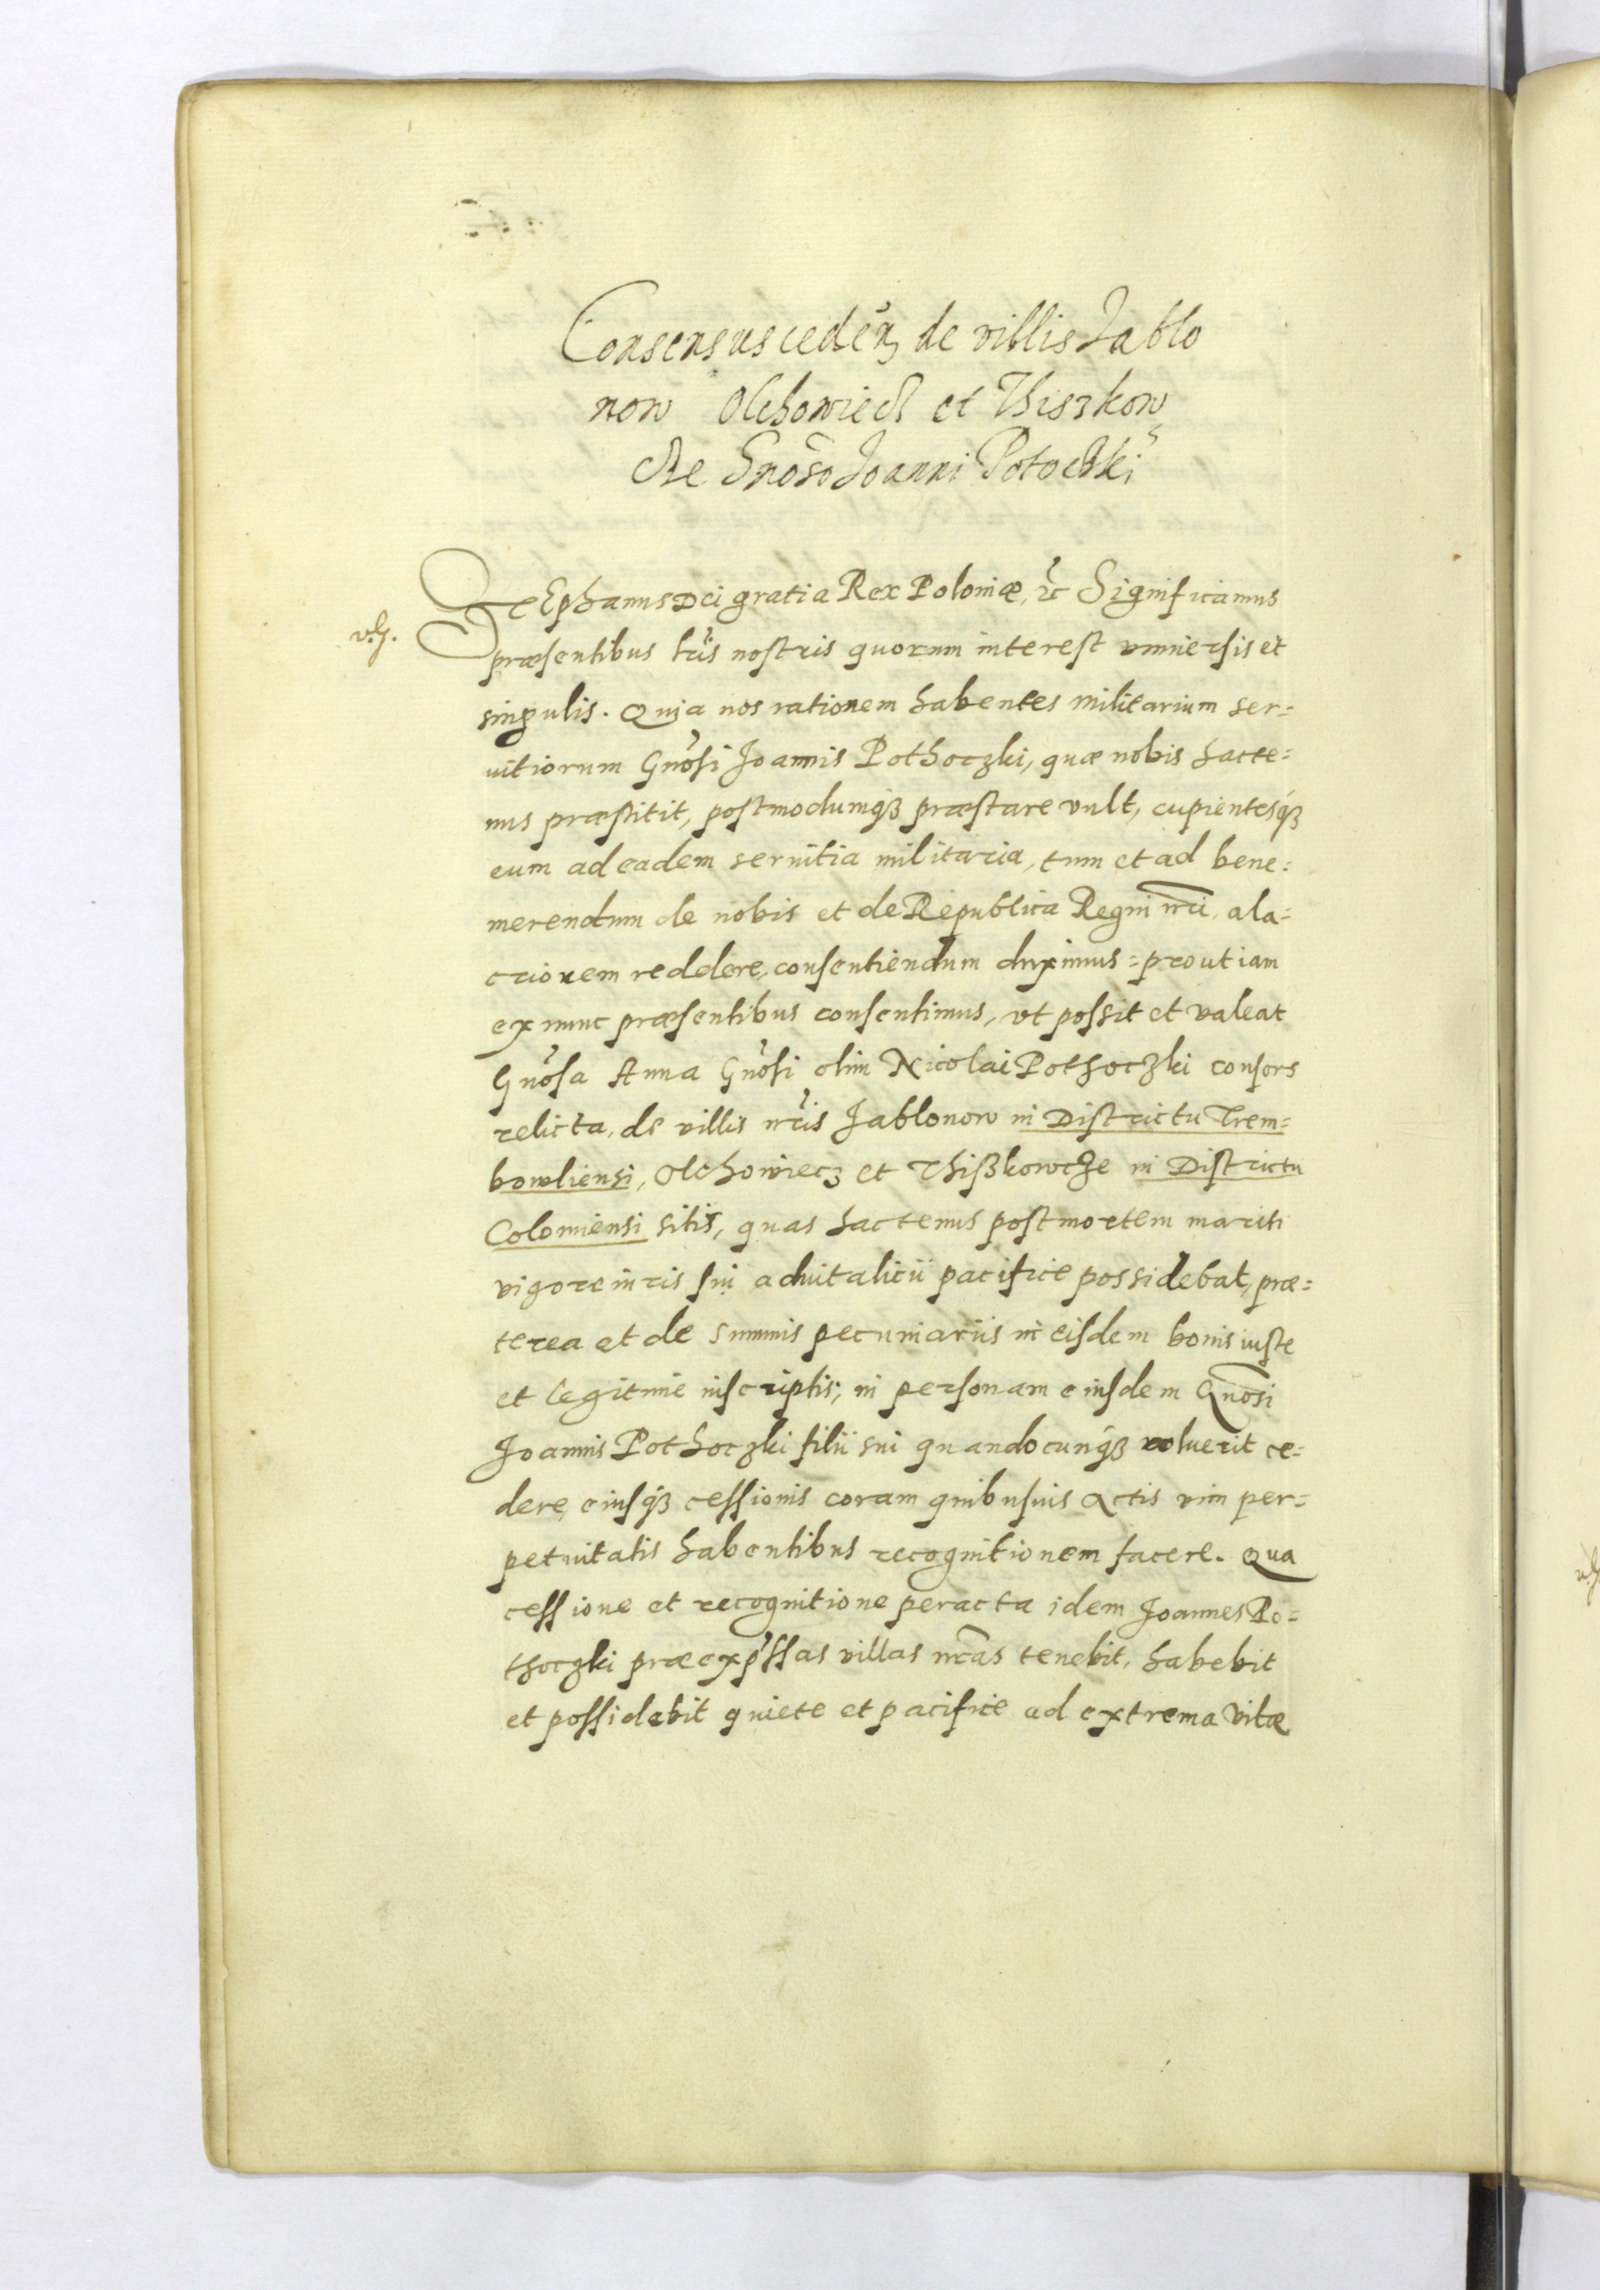 Consensus cedēn de villis Jablo
now Olchowiecz et Thiszkow
cze Gnōso Joanni Potoczki
Stephanus Dei gratia Rex Poloniæ, &c Significamus
v. g.
præsentibus lr̃is nostris quorum interest vniuersis et
singulis. Quia nos rationem habentes militarium ser=
uitiorum Gnõsi Joannis Pothoczki, quæ nobis hacte=
nus præstitit, postmodumq3 præstare vult, cupientesq3
eum ad eadem seruitia militaria, tum et ad bene=
merendum de nobis et de Republica Regni nr̃i, ala=
criorem reddere, consentiendum duximus = prout iam
ex nunc præsentibus consentimus, vt possit et valeat
Gnõsa Anna Gnõsi olim Nicolai Pothoczki consors
relicta, de villis nr̃is Jablonow in Districtu Trem=
bowliensi, Olchowiecz et Thißkowcze in Districtu
Colomiensi sitis, quas hactenus post mortem mariti
vigore iuris sui aduitalicii pacifice possidebat, præ=
terea et de summis pecuniariis in eisdem bonis iuste
et legitime inscriptis; in personam eiusdem Gnõsi
Joannis Pothoczki filii sui quandocunq3 voluerit ce=
dere, eiusq3 cessionis coram quibusuis Actis vim per=
petuitatis habentibus recognitionem facere. Qua
cessione et recognitione peracta idem Joannes Po=
thoczki præexp̃ssas villas nr̃as tenebit, habebit
et possidebit quiete et pacifice ad extrema vitæ